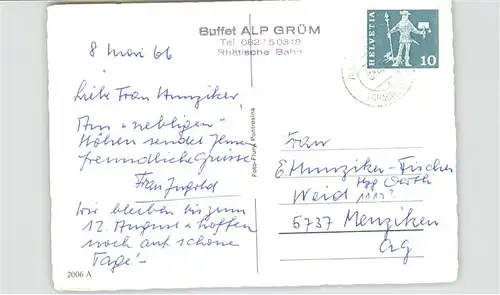 8 Mai 66
Buffet ALP GRÜM
Tel 082/50318
Rhätische Bahn
HELVETIA
10
Liebe Frau Hunziker,
Aus «nebligen»
Höhen sendet Ihnen
freundliche Grüsse
Frau
Wir bleiben bis zum
12. August & hoffen
noch auf schöne
Tage! –
Foto-Flury Pontresina
Frau
E. Hunziker-Fischer
Weid
5737 Menziken
Ag
2006 A